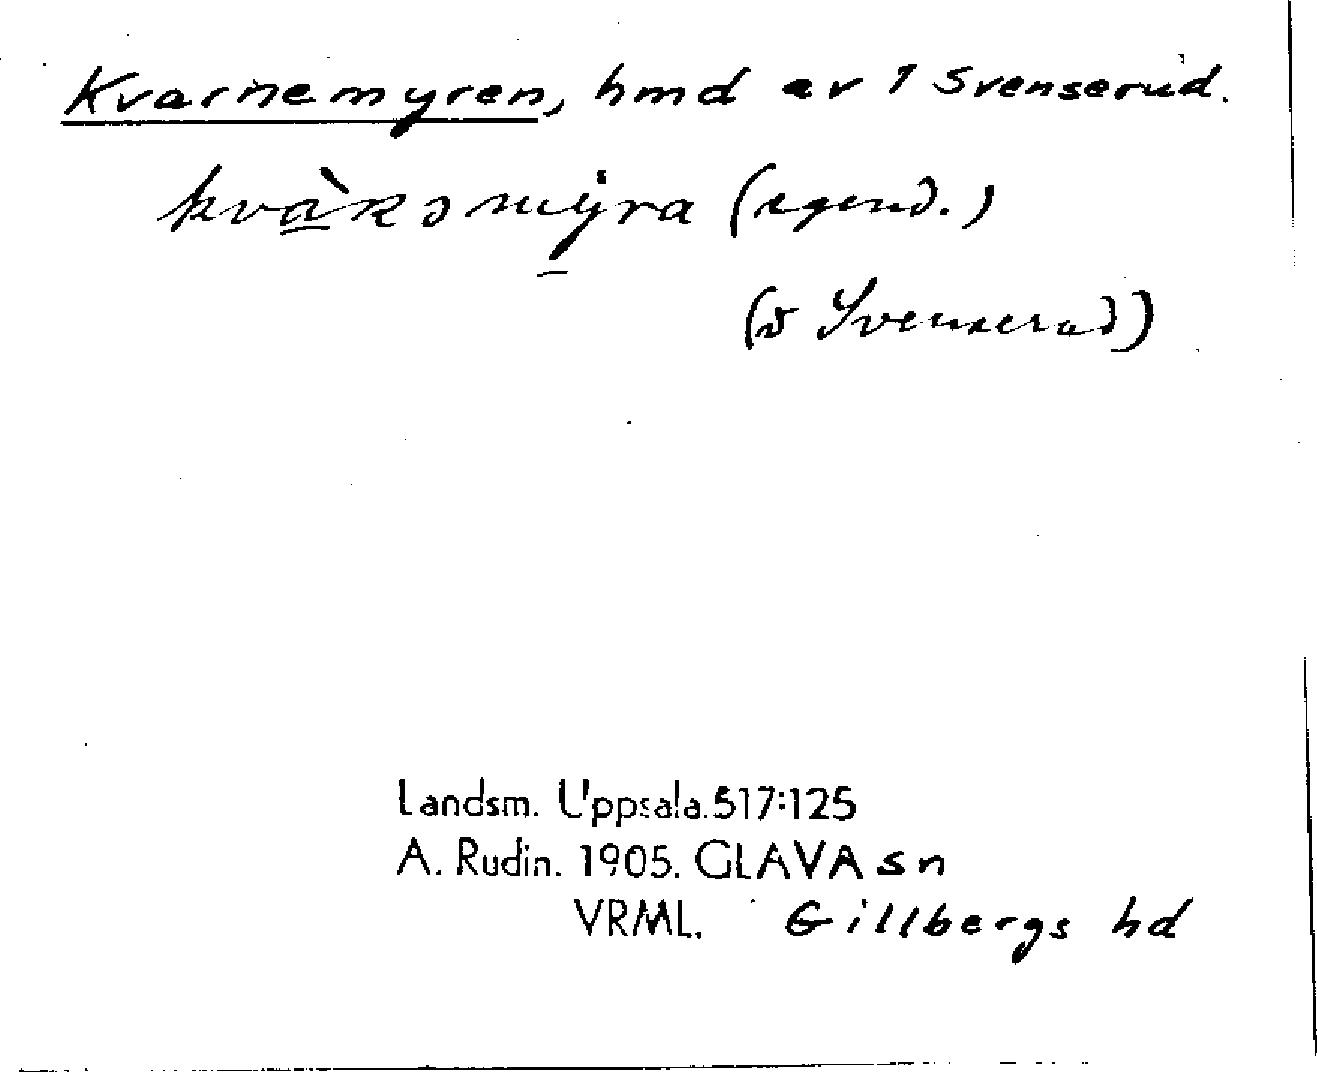 Kvarnemyren, hmd av 1 Svenserud.
(egend.)
Svenserud)
Landsm. Uppsala. 517:125
A. Rudin. 1905. GLAVA sn
VRML. Gillbergs hd